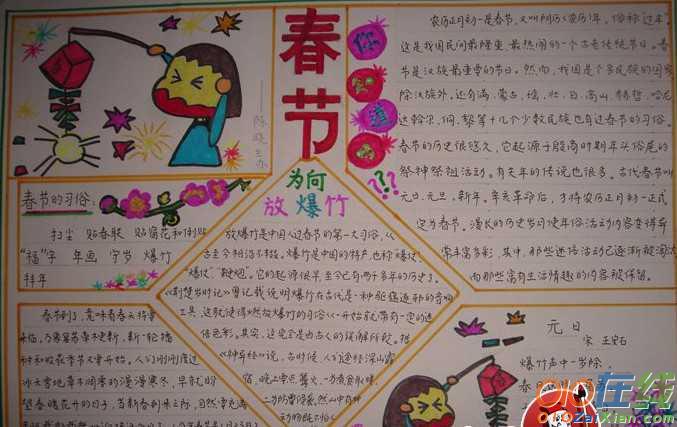 春节
——陈晓兰办
你知道
???
农历正月初一是春节,又叫阴历(农历)年,俗称"过年"。
这是我国民间最隆重、最热闹的一个古老传统节日。春
节是汉族最重要的节日。然而,我国是个多民族的国家
除汉族外,还有满、蒙古、瑶、壮、白、高山、赫哲、哈尼
达斡尔、侗、黎等十几个少数民族也有过春节的习俗。
春节的历史很悠久,它起源于殷商时期年头岁尾的
祭神祭祖活动。有关年的传说也很多。古代春节叫
元日、元旦、新年。辛亥革命后,才将农历正月初一正式
定为春节。漫长的历史岁月使年俗活动内容变得异
常丰富多彩,其中,那些迷信活动已逐渐被淘汰
而那些富有生活情趣的内容被保留。
春节的习俗:
扫尘 贴春联 贴窗花和倒贴
"福"字 年画 守岁 爆竹
拜年
为何
放爆竹
放爆竹是中国人过春节的第一大习俗,从
古至今相沿不辍。爆竹是中国的特产,也称"爆仗"、
"炮仗"、"鞭炮"。它的起源很早,至今已有两千多年的历史了。
《荆楚岁时记》曾记载说明爆竹在古代是一种驱瘟逐邪的音响
工具,这就使得燃放爆竹的习俗从一开始就带有一定的迷
信色彩。其实,这完全是由古人的误解所致。据
《神异经》说,古时候,人们途经深山露
宿,晚上要点篝火,一为煮食取暖,
二为防止野兽侵袭,然山中有种
动物既不怕人
春节到了,意味着春天将要
来临,万象复苏草木更新,新一轮播
种和收获季节又要开始。人们刚刚度过
冰天雪地草木凋零的漫漫寒冬,早就盼
望春暖花开的日子,当新春到来之际,自然要充满
元日
宋 王安石
爆竹声中一岁除,
春
QQ在线
QQZaiXian.Com